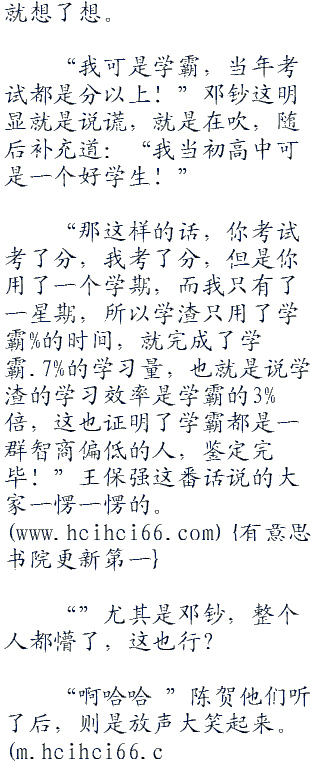 就想了想。
“我可是学霸，当年考
试都是分以上！”邓钞这明
显就是说谎，就是在吹，随
后补充道：“我当初高中可
是一个好学生！”
“那这样的话，你考试
考了分，我考了分，但是你
用了一个学期，而我只有了
一星期，所以学渣只用了学
霸%的时间，就完成了学
霸.7%的学习量，也就是说学
渣的学习效率是学霸的3%
倍，这也证明了学霸都是一
群智商偏低的人，鉴定完
毕！”王保强这番话说的大
家一愣一愣的。
(www.hcihci66.com) {有意思
书院更新第一}
“”尤其是邓钞，整个
人都懵了，这也行？
“啊哈哈 ”陈贺他们听
了后，则是放声大笑起来。
(m.hcihci66.c